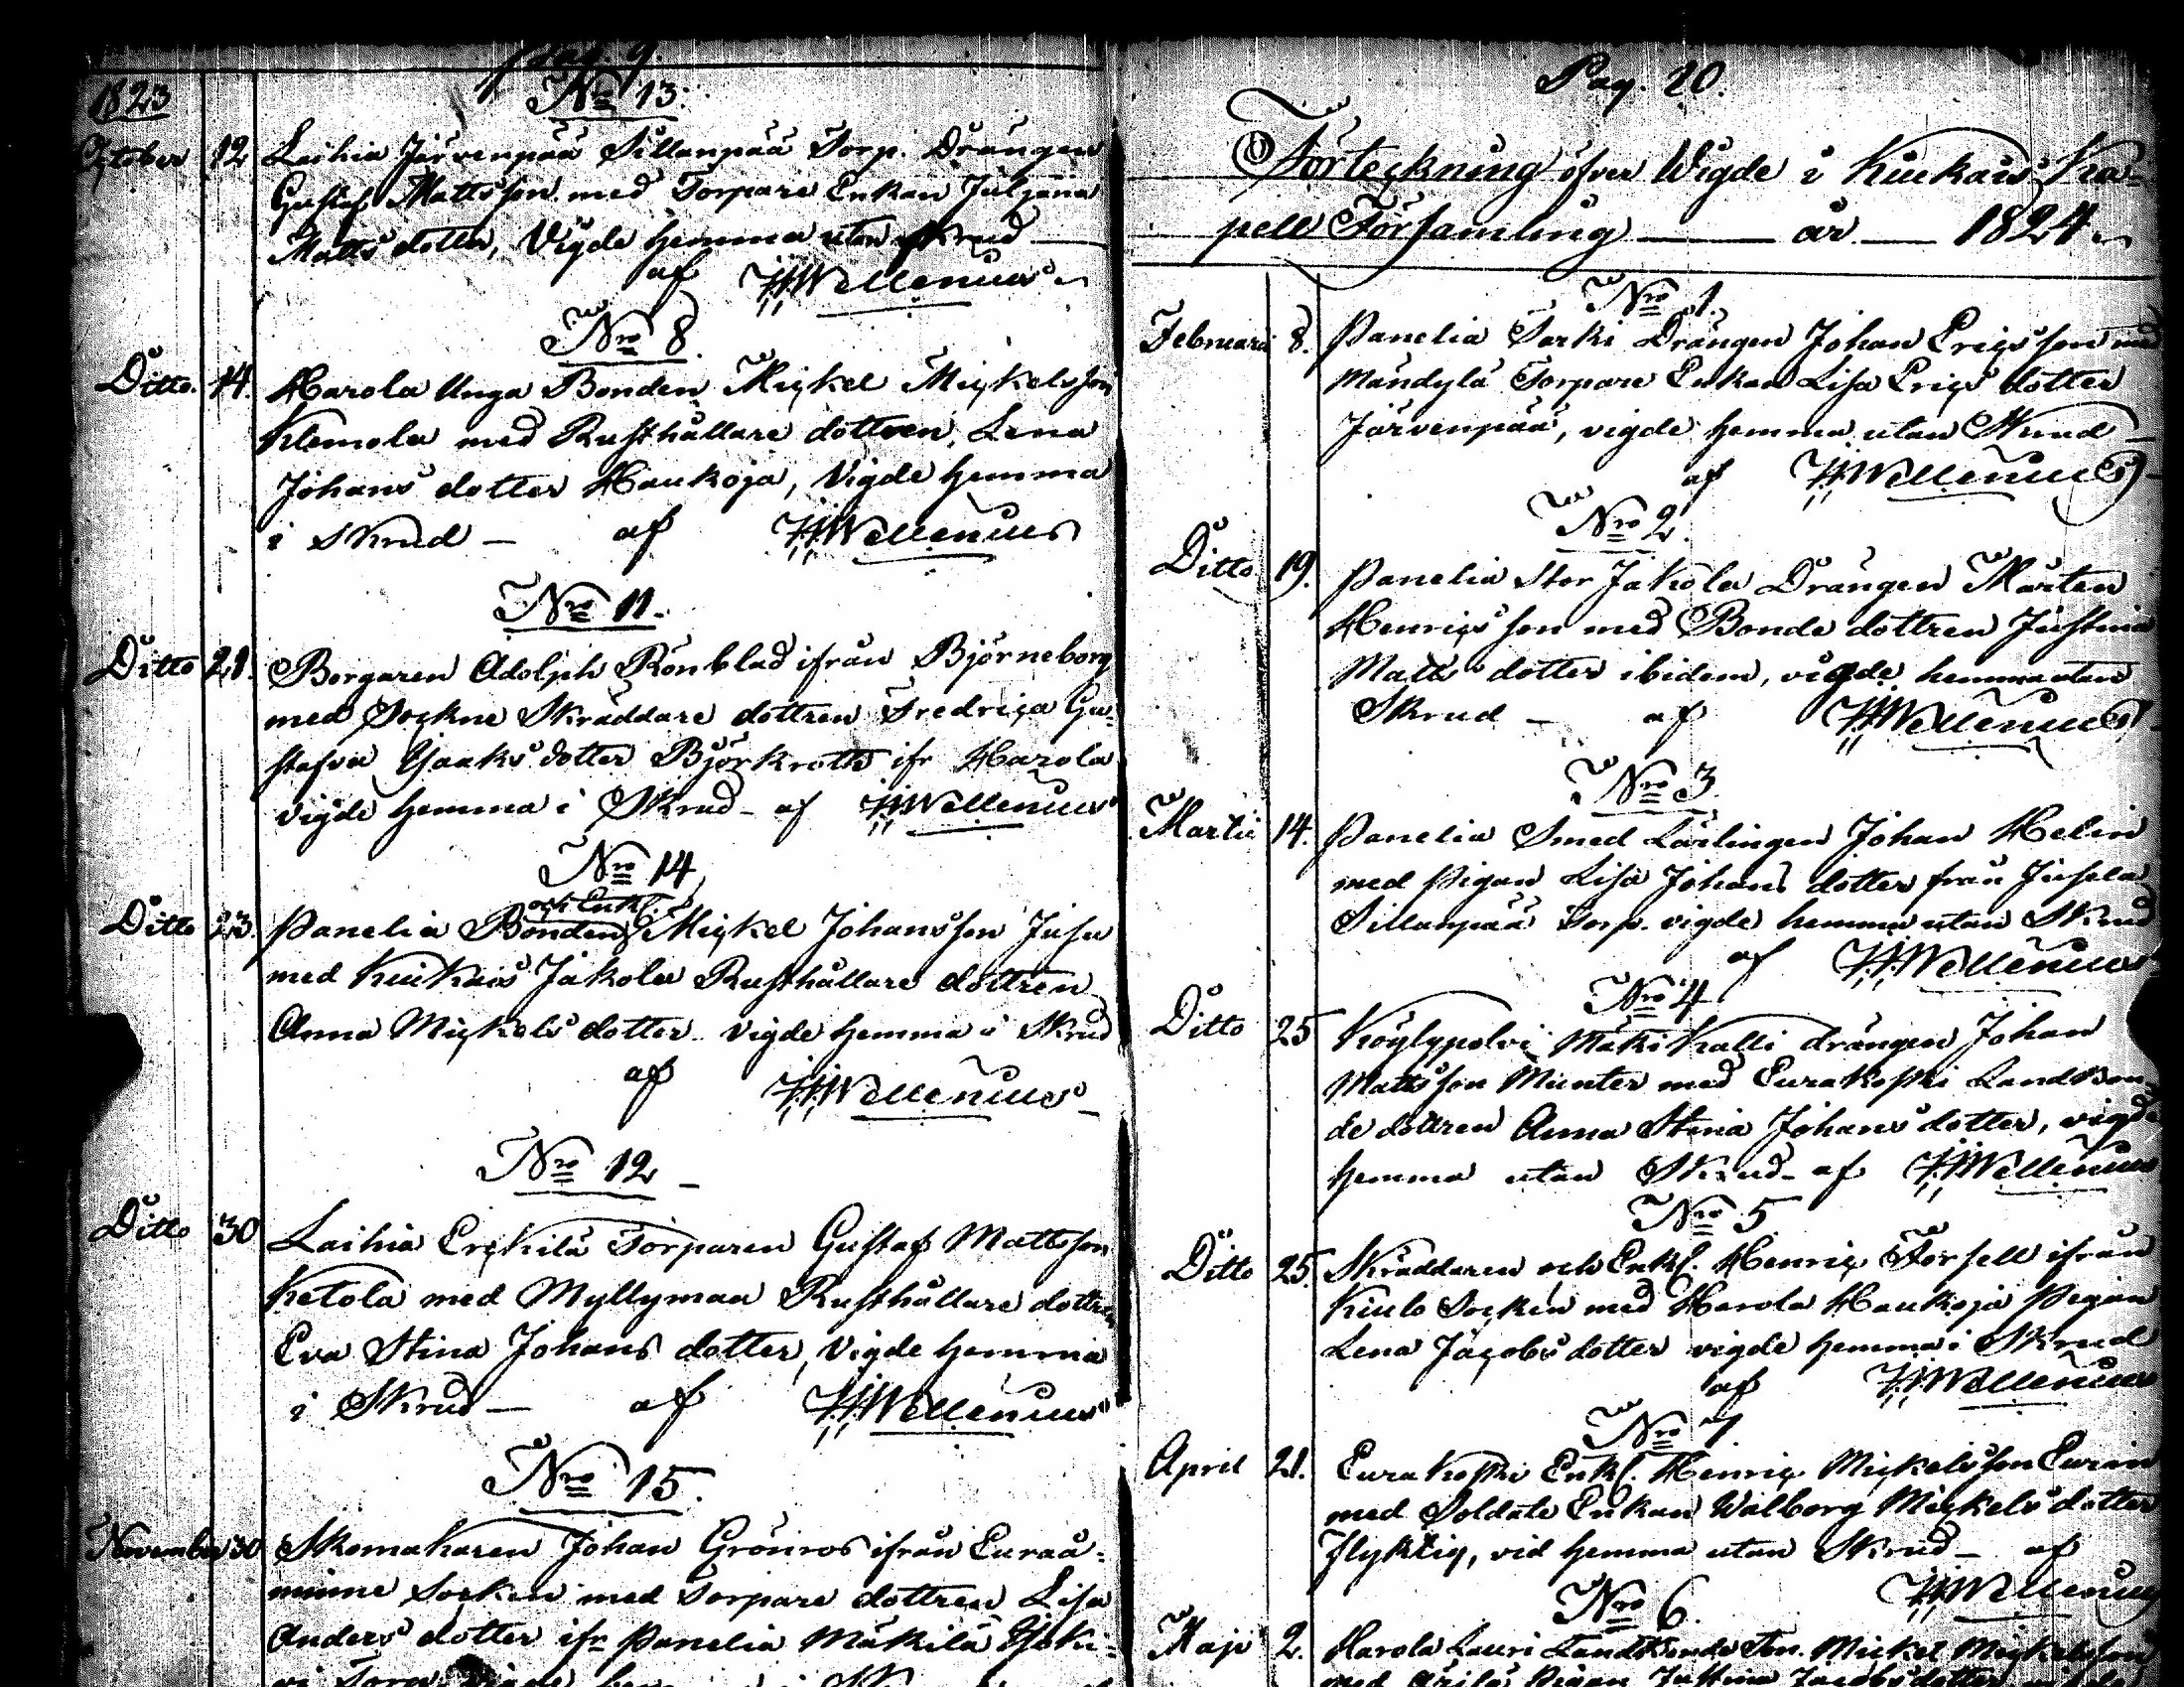 pag. 9.
1823
No 13.
October 12 Laihia Järvenpää Sillanpää Torp. Drängen
Gustaf Mattsson med Torpare Enkan Juljana
Matts dotter, Vigde hemma utan skrud
af HWellenius
Nro 8.
Ditto. 14. Harola Unga Bonden Mickel Mickelsson
Klemola med Rusthållare dottren, Lena
Johans dotter Haukoja, Vigde hemma
i skrud — af HWellenius
Nro 11.
Ditto 21. Borgaren Adolph Rönblad ifrån Björneborg
med Sockne Skräddare dottren Fredrica Gu-
stafva Isaaks dotter Björkroth ifr Harola
vigde hemma i Skrud – af HWellenius
Nro 14
och Enkl.
Ditto 23. Panelia Bonden Mickel Johansson Jusu
med Kiukais Jakola Rusthållare dottren
Anna Mickels dotter vigde hemma i Skrud
af HWellenius
Nro 12
Ditto 30 Laihia Erckilä Torparen Gustaf Mattsson
Ketola med Myllymaa Rusthållare dottren
Eva Stina Johans dotter, Vigde hemma
i Skrud — af HWellenius
Nro 15.
November 30 Skomakaren Johan Grönros ifrån Euraå-
minne Socken med Torpare dottren Lisa
Anders dotter ifr Panelia Mäkilä
Torp. Vigde
Pag. 20.
Förteckning öfver Wigde i Kiukais Ka-
pell Församling — år — 1824
Nro 1.
Februarii 8. Panelia Sarki Drängen Johan Ericsson med
Mandylä Torpare Enkan Lisa Erics dotter
Järvenpää, vigde hemma utan Skrud
af HWellenius
Nro 2.
Ditto 19. Panelia Stor Jakola Drängen Mårten
Henricsson med Bonde dottren Justina
Matts dotter ibidem, vigde hemma utan
Skrud — af HWellenius
Nro 3
Martii 14. Panelia Smed Lärlingen Johan Helin
med Pigan Lisa Johans dotter från Jusela
Sillanpää Torp. vigde hemma utan Skrud
af HWellenius
Nro 4
Ditto 25 Köylypolvi Mäki Kalli drängen Johan
Mattsson Munter med Eurakoski Landbon-
de dottren Anna Stina Johans dotter, vigde
hemma utan Skrud – af HWellenius
Nro 5
Ditto 25. Skräddaren och Enkl. Henric Forsell ifrån
Kiulo Socken med Harola Haukoja Pigan
Lena Jacobs dotter vigde hemma i Skrud
af HWellenius
Nro 7
April 21. Eurakoski Enkl. Henric Mickelsson Eurén
med Soldate Enkan Walborg Mickels dotter
Flyktig, vid hemma utan Skrud – af
HWellenius
Nro 6.
Maji 2. Harola Lauri Landbonde Son. Mickel Mickelsson
med Ärilä Pigan Justina Jacobs dotter